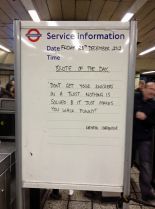 Service information
Date FRIDAY 28TH DECEMBER 2012
Time
QUOTE OF THE DAY
DON'T GET YOUR KNICKERS
IN A TWIST! NOTHING IS
SOLVED & IT JUST MAKES
YOU WALK FUNNY!